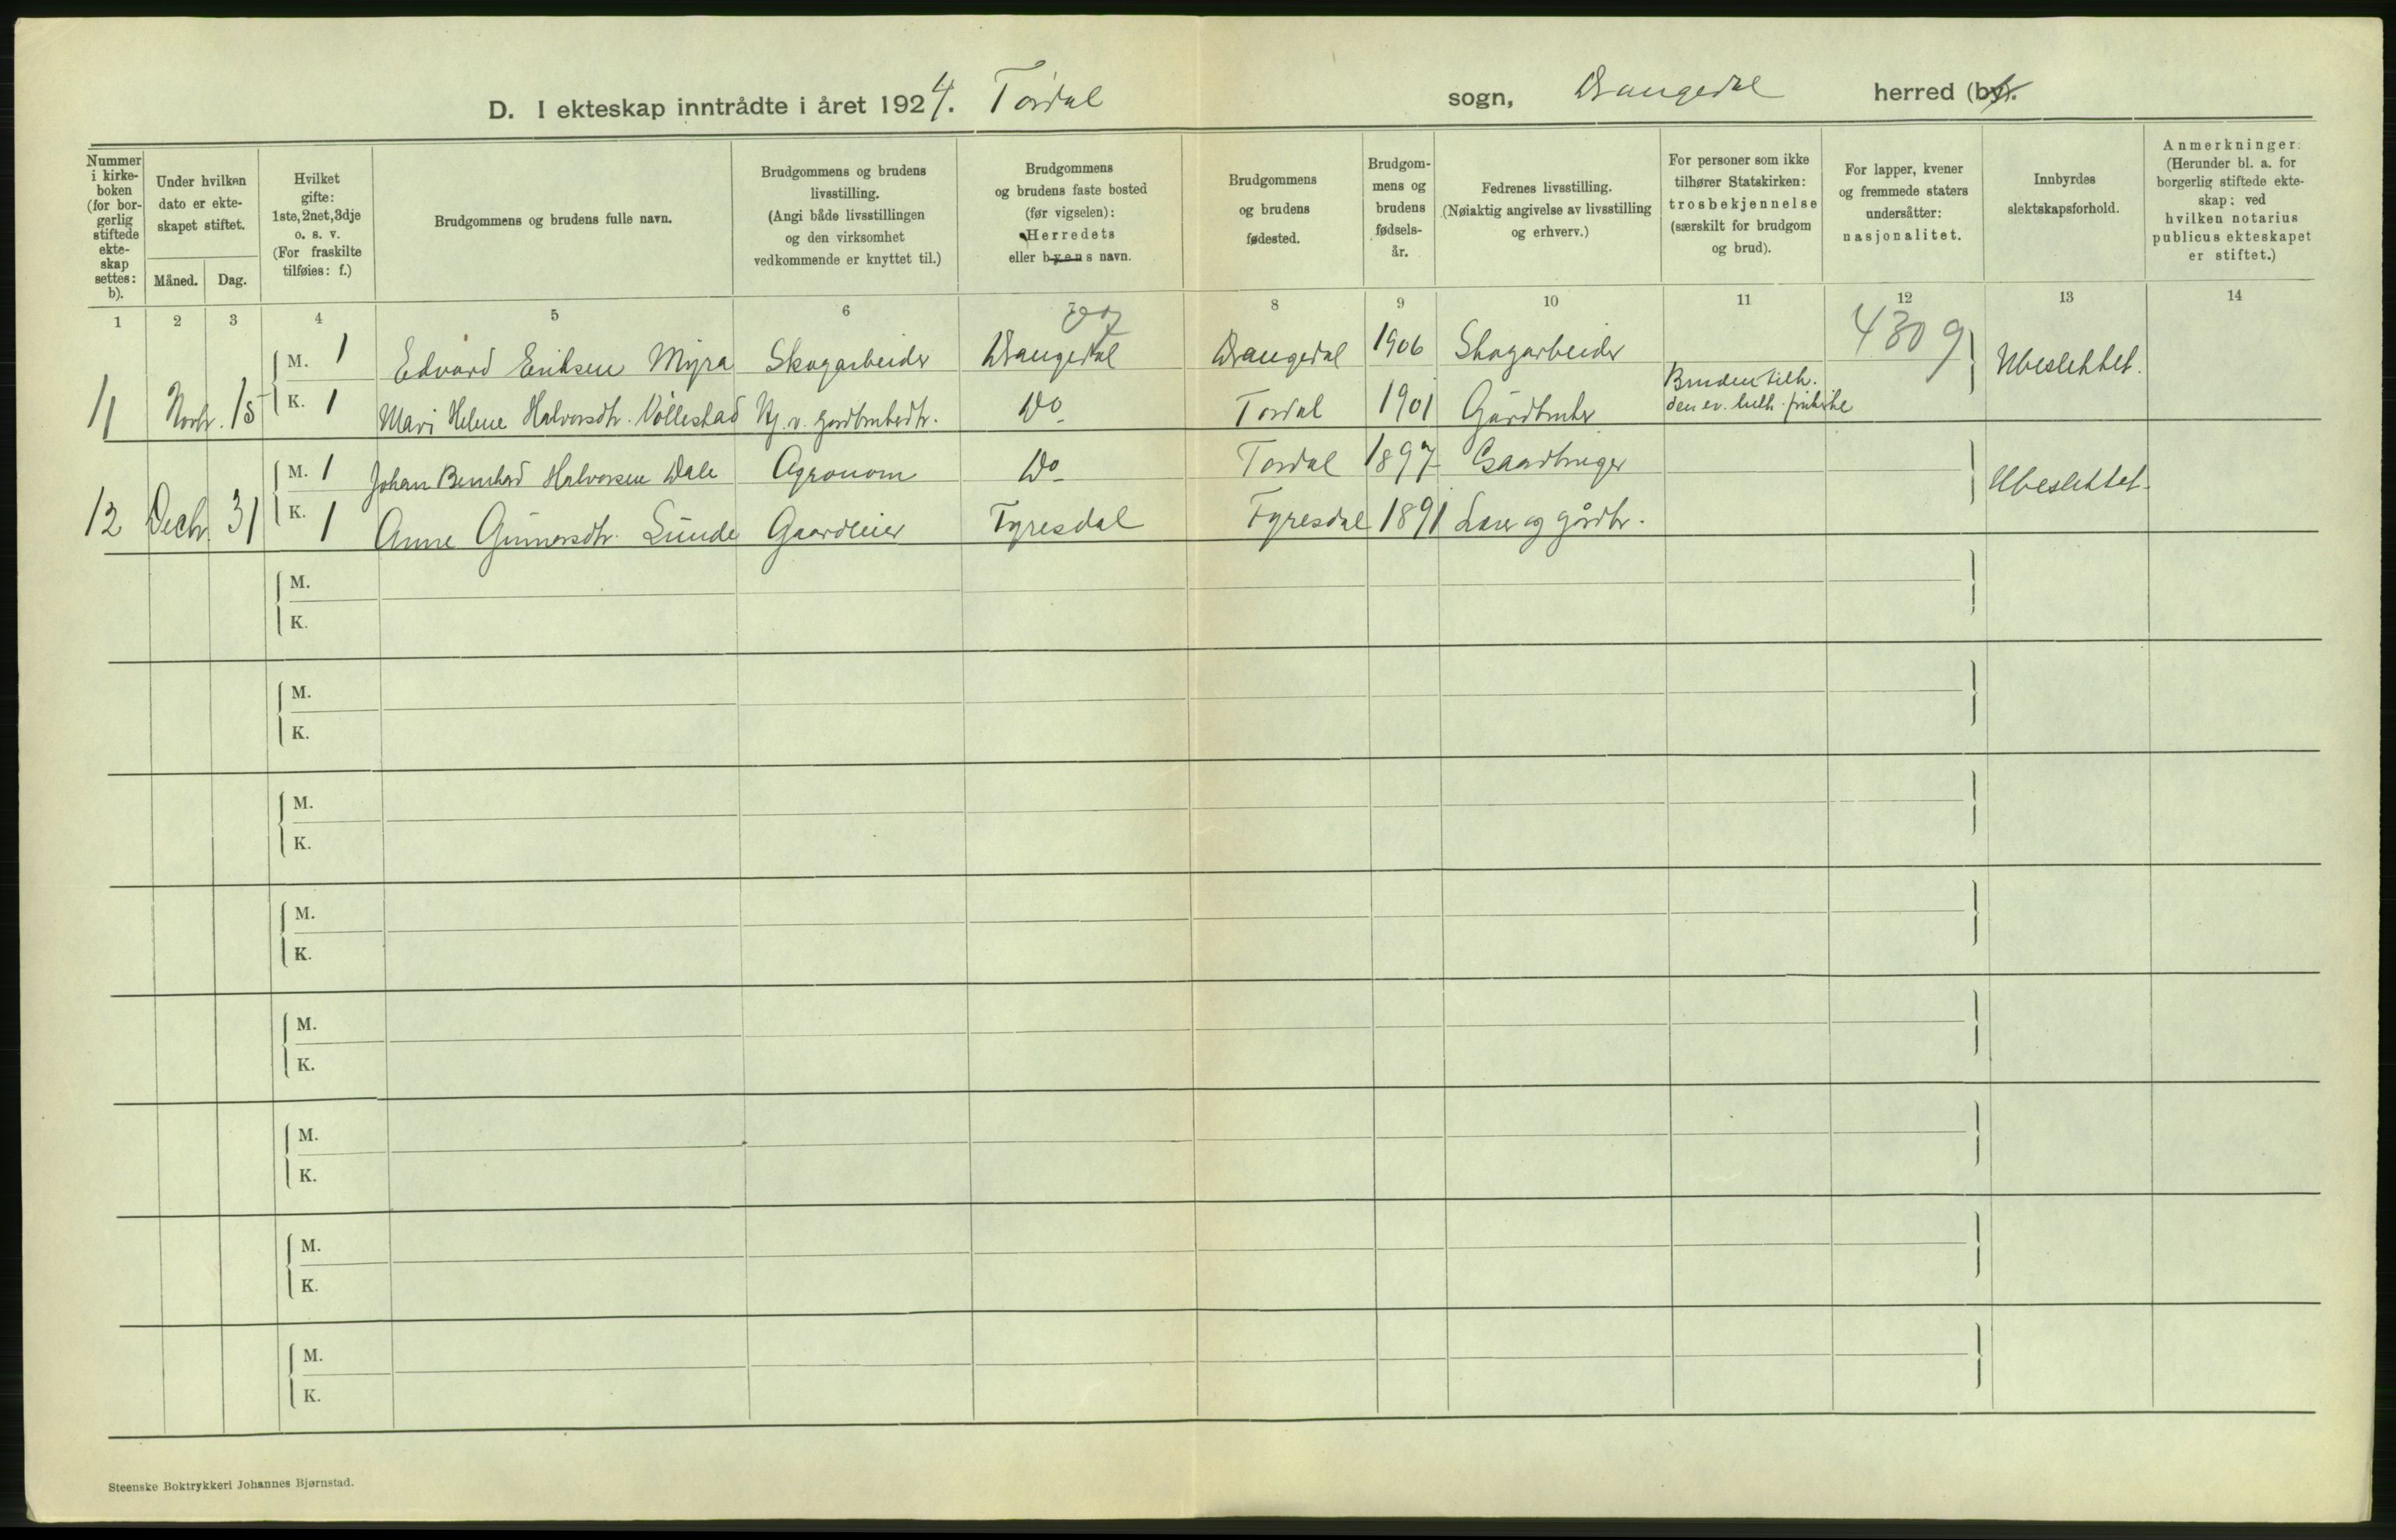 D. I ekteskap inntrådte i året 1924. Tørdal sogn, Drangedal herred (by).
Nummer i kirke-boken (for bor-gerlig stiftede ekte-skap settes: b).
Under hvilken dato er ekte-skapet stiftet.
Måned. Dag.
Hvilket gifte: 1ste, 2net, 3dje o. s. v. (For fraskilte tilføies: f.)
Brudgommens og brudens fulle navn.
Brudgommens og brudens livsstilling. (Angi både livsstillingen og den virksomhet vedkommende er knyttet til.)
Brudgommens og brudens faste bosted (før vigselen): Herredets eller byens navn.
Brudgommens og brudens fødested.
Brudgom-mens og brudens fødsels-år.
Fedrenes livsstilling. (Nøiaktig angivelse av livsstilling og erhverv.)
For personer som ikke tilhører Statskirken: trosbekjennelse (særskilt for brudgom og brud).
For lapper, kvener og fremmede staters undersåtter: nasjonalitet.
Innbyrdes slektskapsforhold.
Anmerkninger: (Herunder bl. a. for borgerlig stiftede ekte-skap: ved hvilken notarius publicus ekteskapet er stiftet.)
1 2 3 4 5 6 7 8 9 10 11 12 13 14
4309
M. 1 Edvard Eriksen Myra Skogarbeider Drangedal Drangedal 1906 Skogarbeider Ubeslektet.
11 Novbr. 15 K. 1 Mari Helene Halvorsdtr. Vøllestad Hj. v. gardbrukerdtr. Do Tørdal 1901 Gårdbruker Bruden tilh. den ev. luth. frikirke
M. 1 Johan Bernhard Halvorsen Dale Agronom Do Tørdal 1897 Gaardbruger Ubeslektet.
12 Decbr. 31 K. 1 Anne Gunnarsdtr. Lunde Gaardeier Fyresdal Fyresdal 1891 Lærer og gårdbr.
M.
K.
M.
K.
M.
K.
M.
K.
M.
K.
M.
K.
M.
K.
M.
K.
Steenske Boktrykkeri Johannes Bjørnstad.